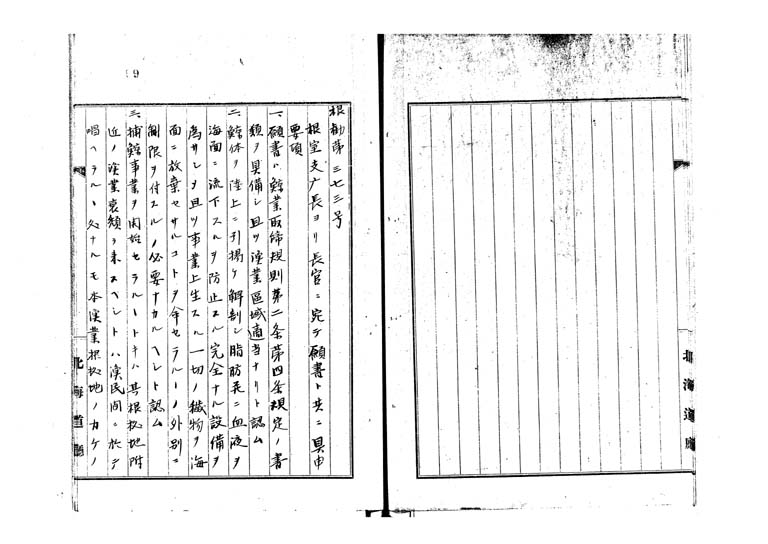 根勧第三七三号
根室支庁長ヨリ長官ニ宛テ願書ト共ニ具申
要項
一、願書ハ鯨業取締規則第二条第四条規定ノ書
類ヲ具備シ且ツ漁業区域適当ナリト認ム
二、鯨体ヲ陸上ニ引揚ケ解剖シ脂肪并ニ血液ヲ
海面ニ流下スルヲ防止スル完全ナル設備ヲ
為サシメ且ツ事業上生スル一切ノ穢物ヲ海
面ニ放棄セサルコトヲ命セラルヽノ外別ニ
制限ヲ付スルノ必要ナカルヘシト認ム
三、捕鯨事業ヲ開始セラルヽトキハ其根拠地附
近ノ漁業衰頽ヲ来スヘシトハ漁民間ニ於テ
唱ヘラルヽ処ナルモ本漁業根拠地ノカケノ
北海道庁
北海道庁
19